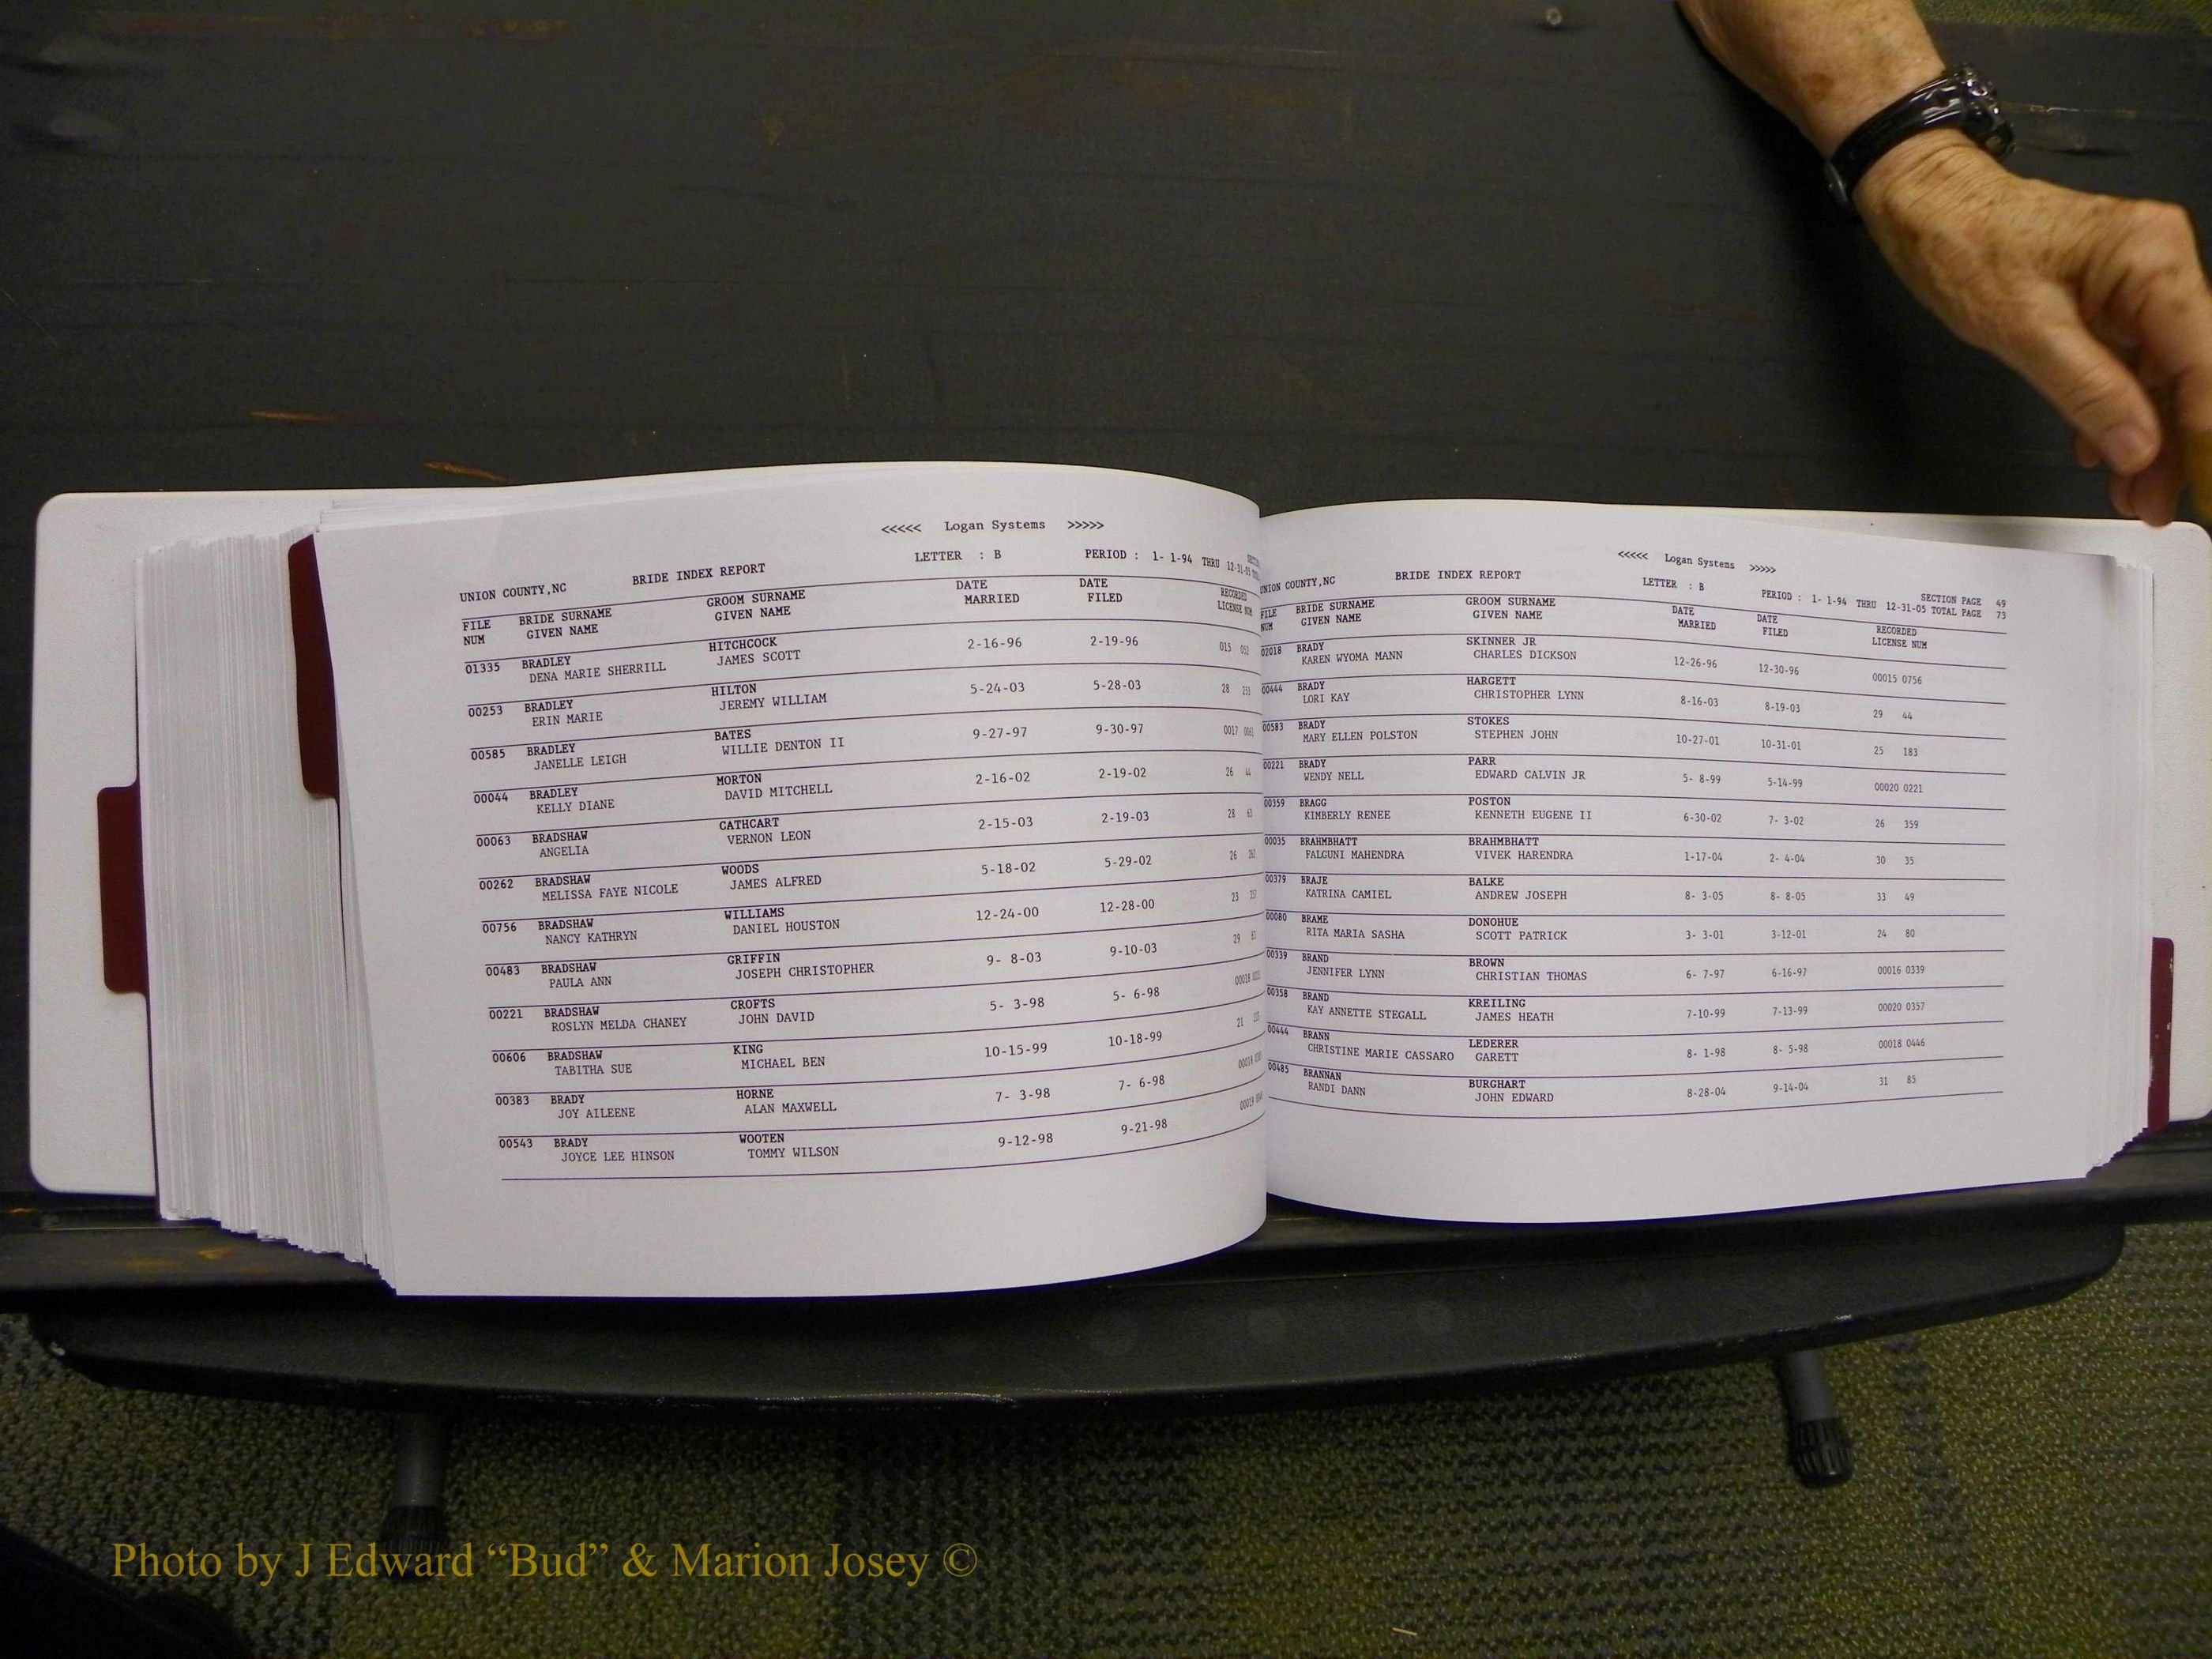 <<<<< Logan Systems >>>>>
UNION COUNTY,NC BRIDE INDEX REPORT LETTER : B PERIOD : 1- 1-94 THRU 12-31-05
FILE BRIDE SURNAME GROOM SURNAME DATE DATE RECORDED
NUM GIVEN NAME GIVEN NAME MARRIED FILED LICENSE NUM
01335 BRADLEY HITCHCOCK 2-16-96 2-19-96 015
DENA MARIE SHERRILL JAMES SCOTT
00253 BRADLEY HILTON 5-24-03 5-28-03 28 253
ERIN MARIE JEREMY WILLIAM
00585 BRADLEY BATES 9-27-97 9-30-97 0017
JANELLE LEIGH WILLIE DENTON II
00044 BRADLEY MORTON 2-16-02 2-19-02 26 44
KELLY DIANE DAVID MITCHELL
00063 BRADSHAW CATHCART 2-15-03 2-19-03 28 63
ANGELIA VERNON LEON
00262 BRADSHAW WOODS 5-18-02 5-29-02 26 262
MELISSA FAYE NICOLE JAMES ALFRED
00756 BRADSHAW WILLIAMS 12-24-00 12-28-00 23
NANCY KATHRYN DANIEL HOUSTON
00483 BRADSHAW GRIFFIN 9- 8-03 9-10-03 29
PAULA ANN JOSEPH CHRISTOPHER
00221 BRADSHAW CROFTS 5- 3-98 5- 6-98 00018
ROSLYN MELDA CHANEY JOHN DAVID
00606 BRADSHAW KING 10-15-99 10-18-99 21
TABITHA SUE MICHAEL BEN
00383 BRADY HORNE 7- 3-98 7- 6-98 00018
JOY AILEENE ALAN MAXWELL
00543 BRADY WOOTEN 9-12-98 9-21-98 00019
JOYCE LEE HINSON TOMMY WILSON
<<<<< Logan Systems >>>>>
UNION COUNTY,NC BRIDE INDEX REPORT LETTER : B SECTION PAGE 49
PERIOD : 1- 1-94 THRU 12-31-05 TOTAL PAGE 73
FILE BRIDE SURNAME GROOM SURNAME DATE DATE RECORDED
NUM GIVEN NAME GIVEN NAME MARRIED FILED LICENSE NUM
02018 BRADY SKINNER JR 12-26-96 12-30-96 00015 0756
KAREN WYOMA MANN CHARLES DICKSON
00444 BRADY HARGETT 8-16-03 8-19-03 29 44
LORI KAY CHRISTOPHER LYNN
00583 BRADY STOKES 10-27-01 10-31-01 25 183
MARY ELLEN POLSTON STEPHEN JOHN
00221 BRADY PARR 5- 8-99 5-14-99 00020 0221
WENDY NELL EDWARD CALVIN JR
00359 BRAGG POSTON 6-30-02 7- 3-02 26 359
KIMBERLY RENEE KENNETH EUGENE II
00035 BRAHMBHATT BRAHMBHATT 1-17-04 2- 4-04 30 35
FALGUNI MAHENDRA VIVEK HARENDRA
00379 BRAJE BALKE 8- 3-05 8- 8-05 33 49
KATRINA CAMIEL ANDREW JOSEPH
00080 BRAME DONOHUE 3- 3-01 3-12-01 24 80
RITA MARIA SASHA SCOTT PATRICK
00339 BRAND BROWN 6- 7-97 6-16-97 00016 0339
JENNIFER LYNN CHRISTIAN THOMAS
00358 BRAND KREILING 7-10-99 7-13-99 00020 0357
KAY ANNETTE STEGALL JAMES HEATH
00444 BRANN LEDERER 8- 1-98 8- 5-98 00018 0446
CHRISTINE MARIE CASSARO GARETT
00485 BRANNAN BURGHART 8-28-04 9-14-04 31 85
RANDI DANN JOHN EDWARD
Photo by J Edward “Bud” & Marion Josey ©